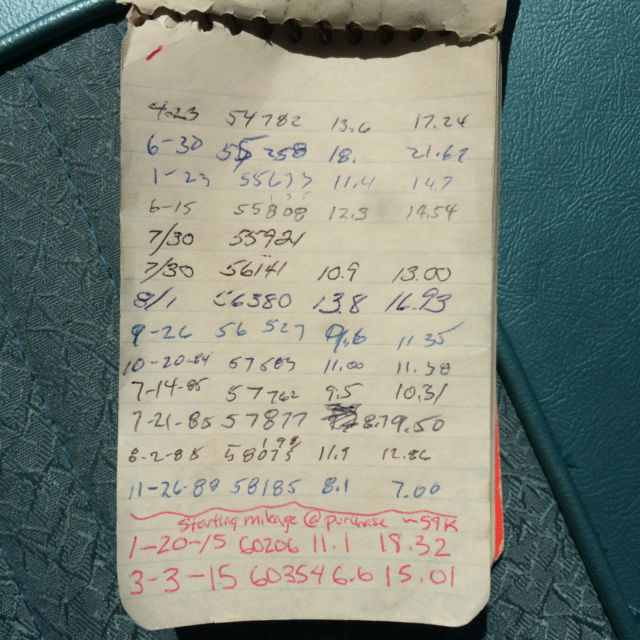 4-23 54782 13.6 17.24
6-30 55358 18. 21.67
1-23 55673 11.4 14.7
6-15 55808 12.3 14.54
7/30 55921
7/30 56141 10.9 13.00
8/1 56380 13.8 16.93
9-26 56 527 9.6 11.35
10-20-84 57583 11.00 11.38
7-14-85 57762 9.5 10.31
7-21-85 57877 8.7 9.50
198
8-2-88 58075 11.9 12.86
11-26-88 58185 8.1 7.00
Starting milage @ purchase ~59K
1-20-15 60206 11.1 18.32
3-3-15 60354 6.6 15.01